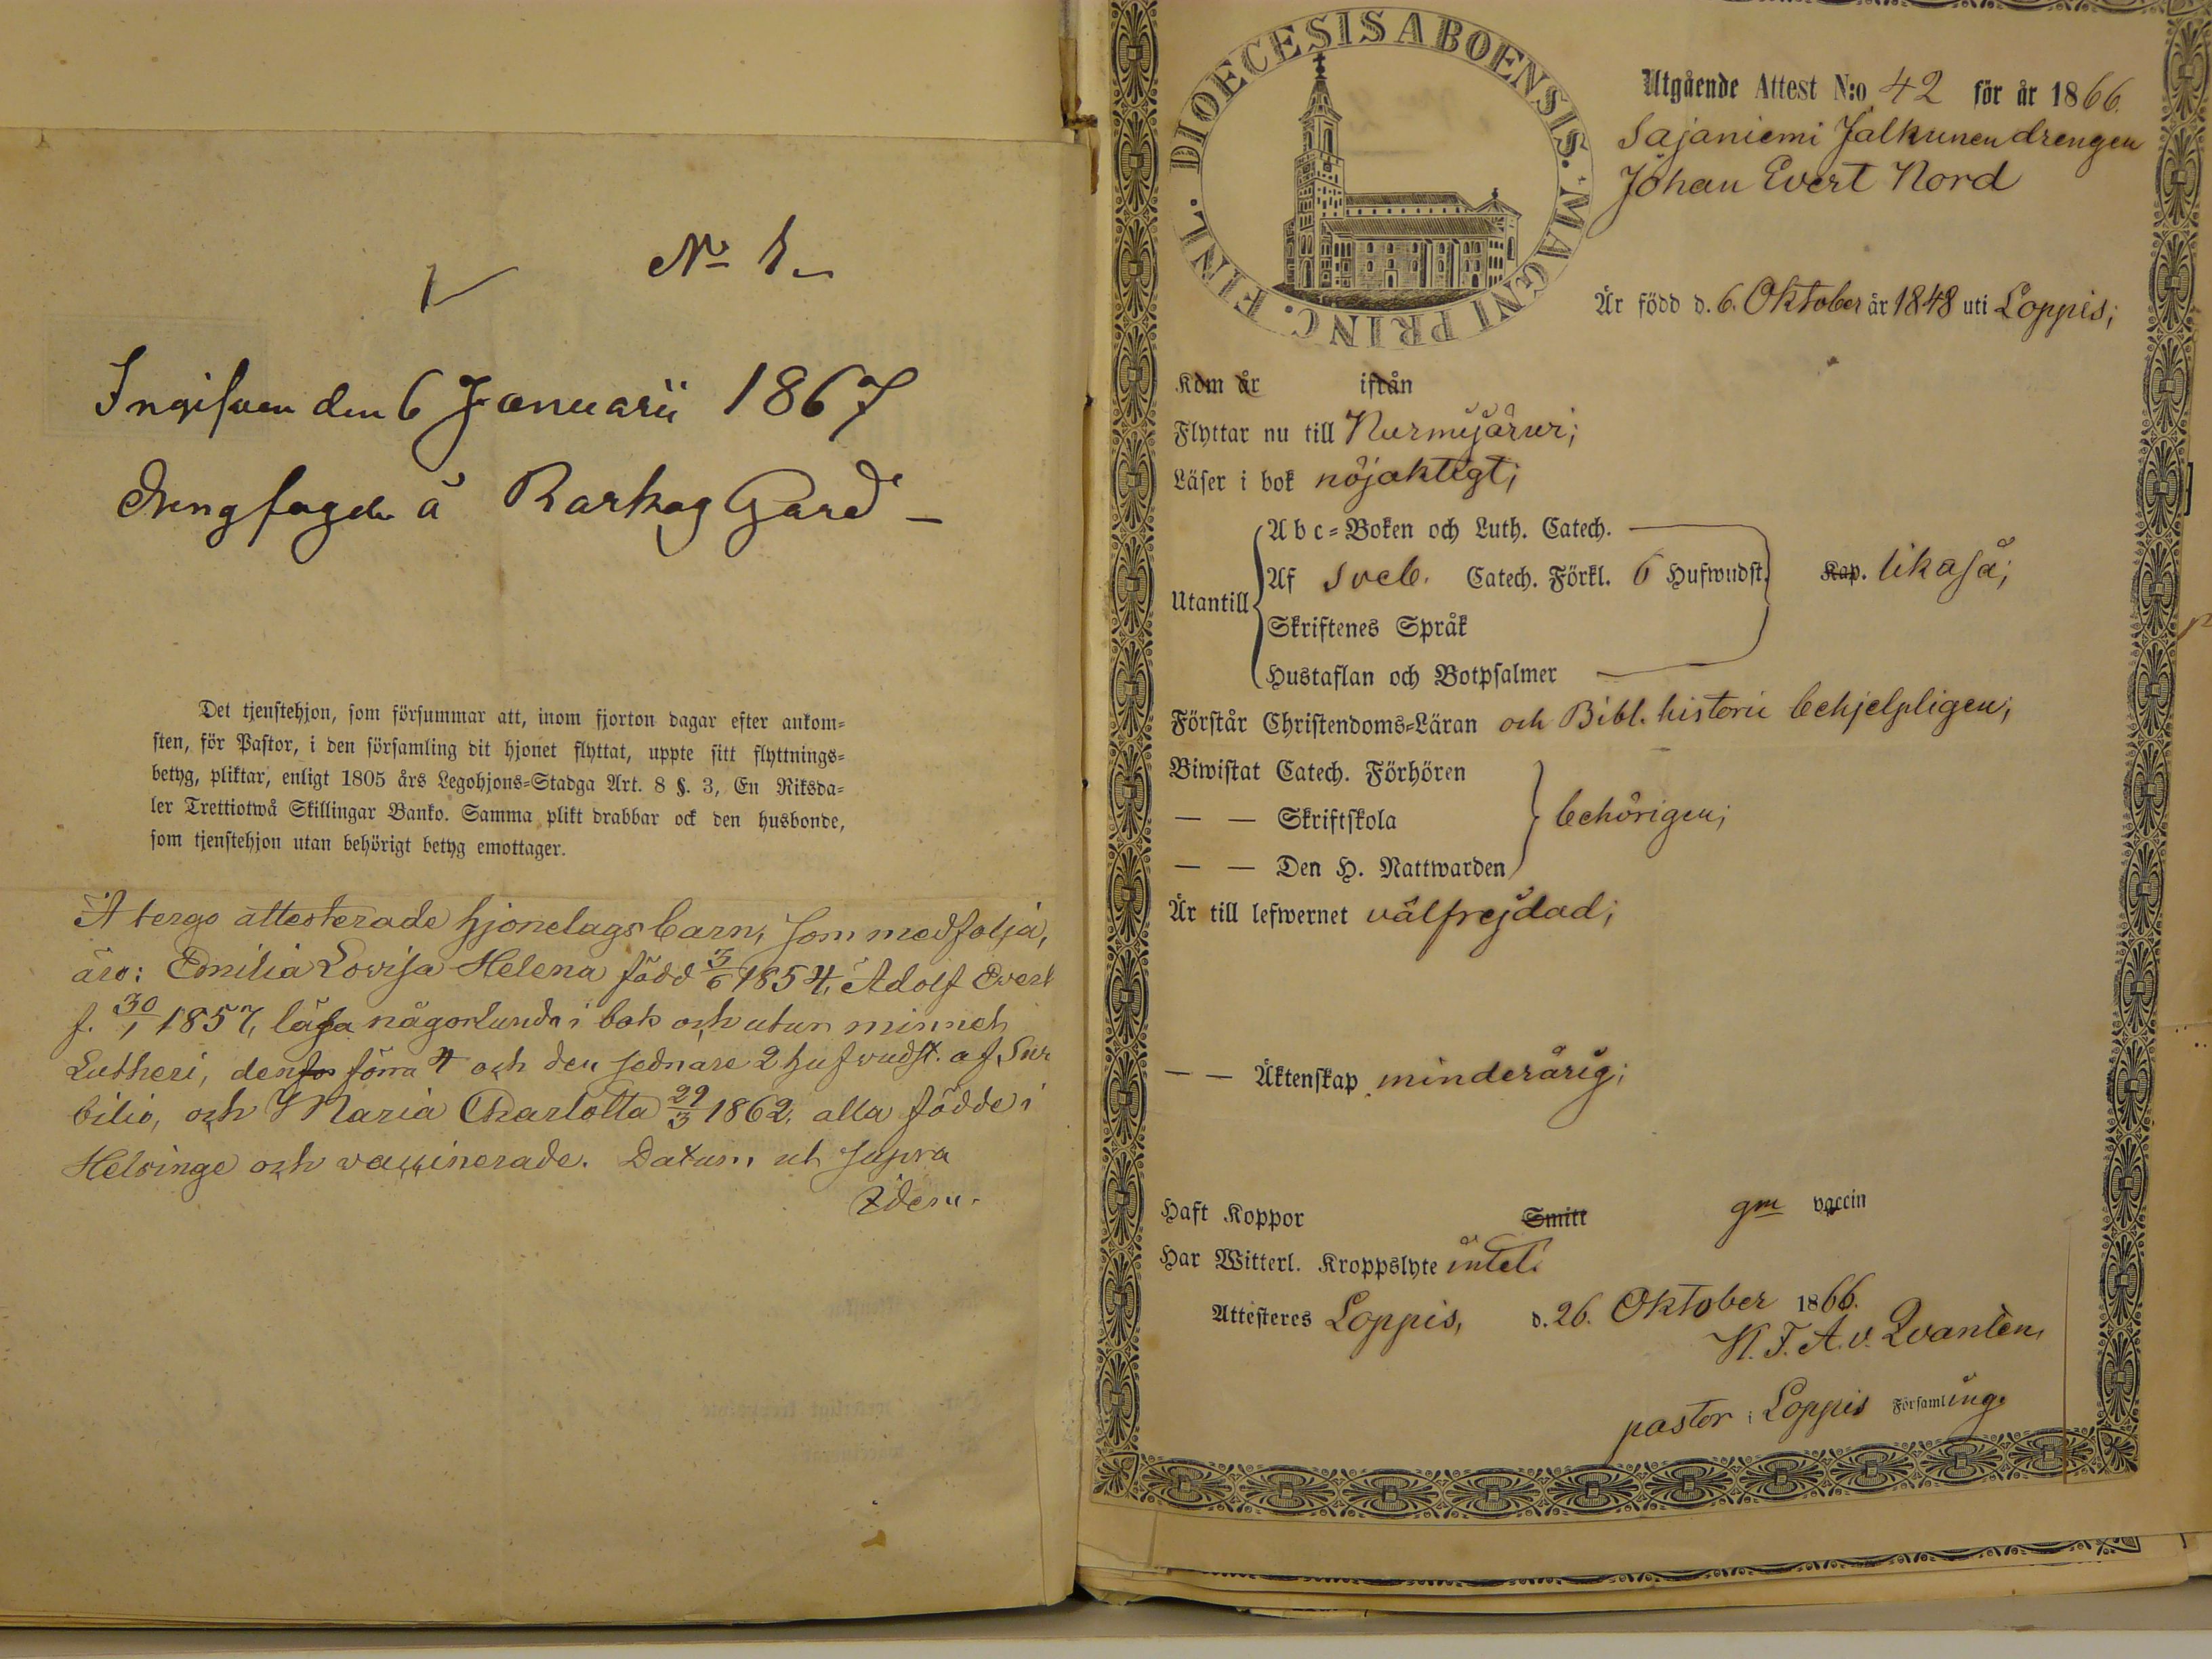 No 1
Ingifven den 6 Januarii 1867
Drengfogde å Barkog Gård
Det tjenstehjon, som försummar att, inom fjorton dagar efter ankom=
sten, för Pastor, i den församling dit hjonet flyttat, uppte sitt flyttnings=
betyg, pliktar, enligt 1805 års Legohjons=Stadga Art. 8 §. 3, En Riksda=
ler Trettiotwå Skillingar Banko. Samma plikt drabbar ock den husbonde,
som tjenstehjon utan behörigt betyg emottager.
A tergo attesterade hjonelags barn, som medfölja,
äro: Emilia Lovisa Helena född 3/6 1854, Adolf Evert
f. 30/1 1857, läsa någorlunda i bok och utur minnet
Lutheri, den förra 4 och den sednare 2 hufvudst. af Sve
bilio, och Maria Charlotta 29/3 1862, alla födde i
Helsinge och vaccinerade. Datum ut supra
Idem.
DIOECESIS ABOENSIS. MAGNI PRINC. FINL.
Utgående Attest N:o 42 för år 1866.
Sajaniemi Jalkunen drengen
Johan Evert Nord
Är född d. 6. Oktober år 1848 uti Loppis;
Kom år ifrån
Flyttar nu till Nurmijärvi;
Läser i bok nöjaktigt;
Utantill
A b c=Boken och Luth. Catech.
Af Sveb. Catech. Förkl. 6 Hufwudst. Kap. likaså;
Skriftenes Språk
Hustaflan och Botpsalmer
Förstår Christendoms=Läran och Bibl. historie behjelpligen;
Biwistat Catech. Förhören
— — Skriftskola behörigen;
— — Den H. Nattwarden
Är till lefwernet välfrejdad;
— — Äktenskap minderårig;
Haft Koppor Smitt gm vaccin
Har Witterl. Kroppslyte intet.
Attesteres Loppis, d. 26. Oktober 1866.
K. F. A. v. Qvantèn,
pastor i Loppis Församling.